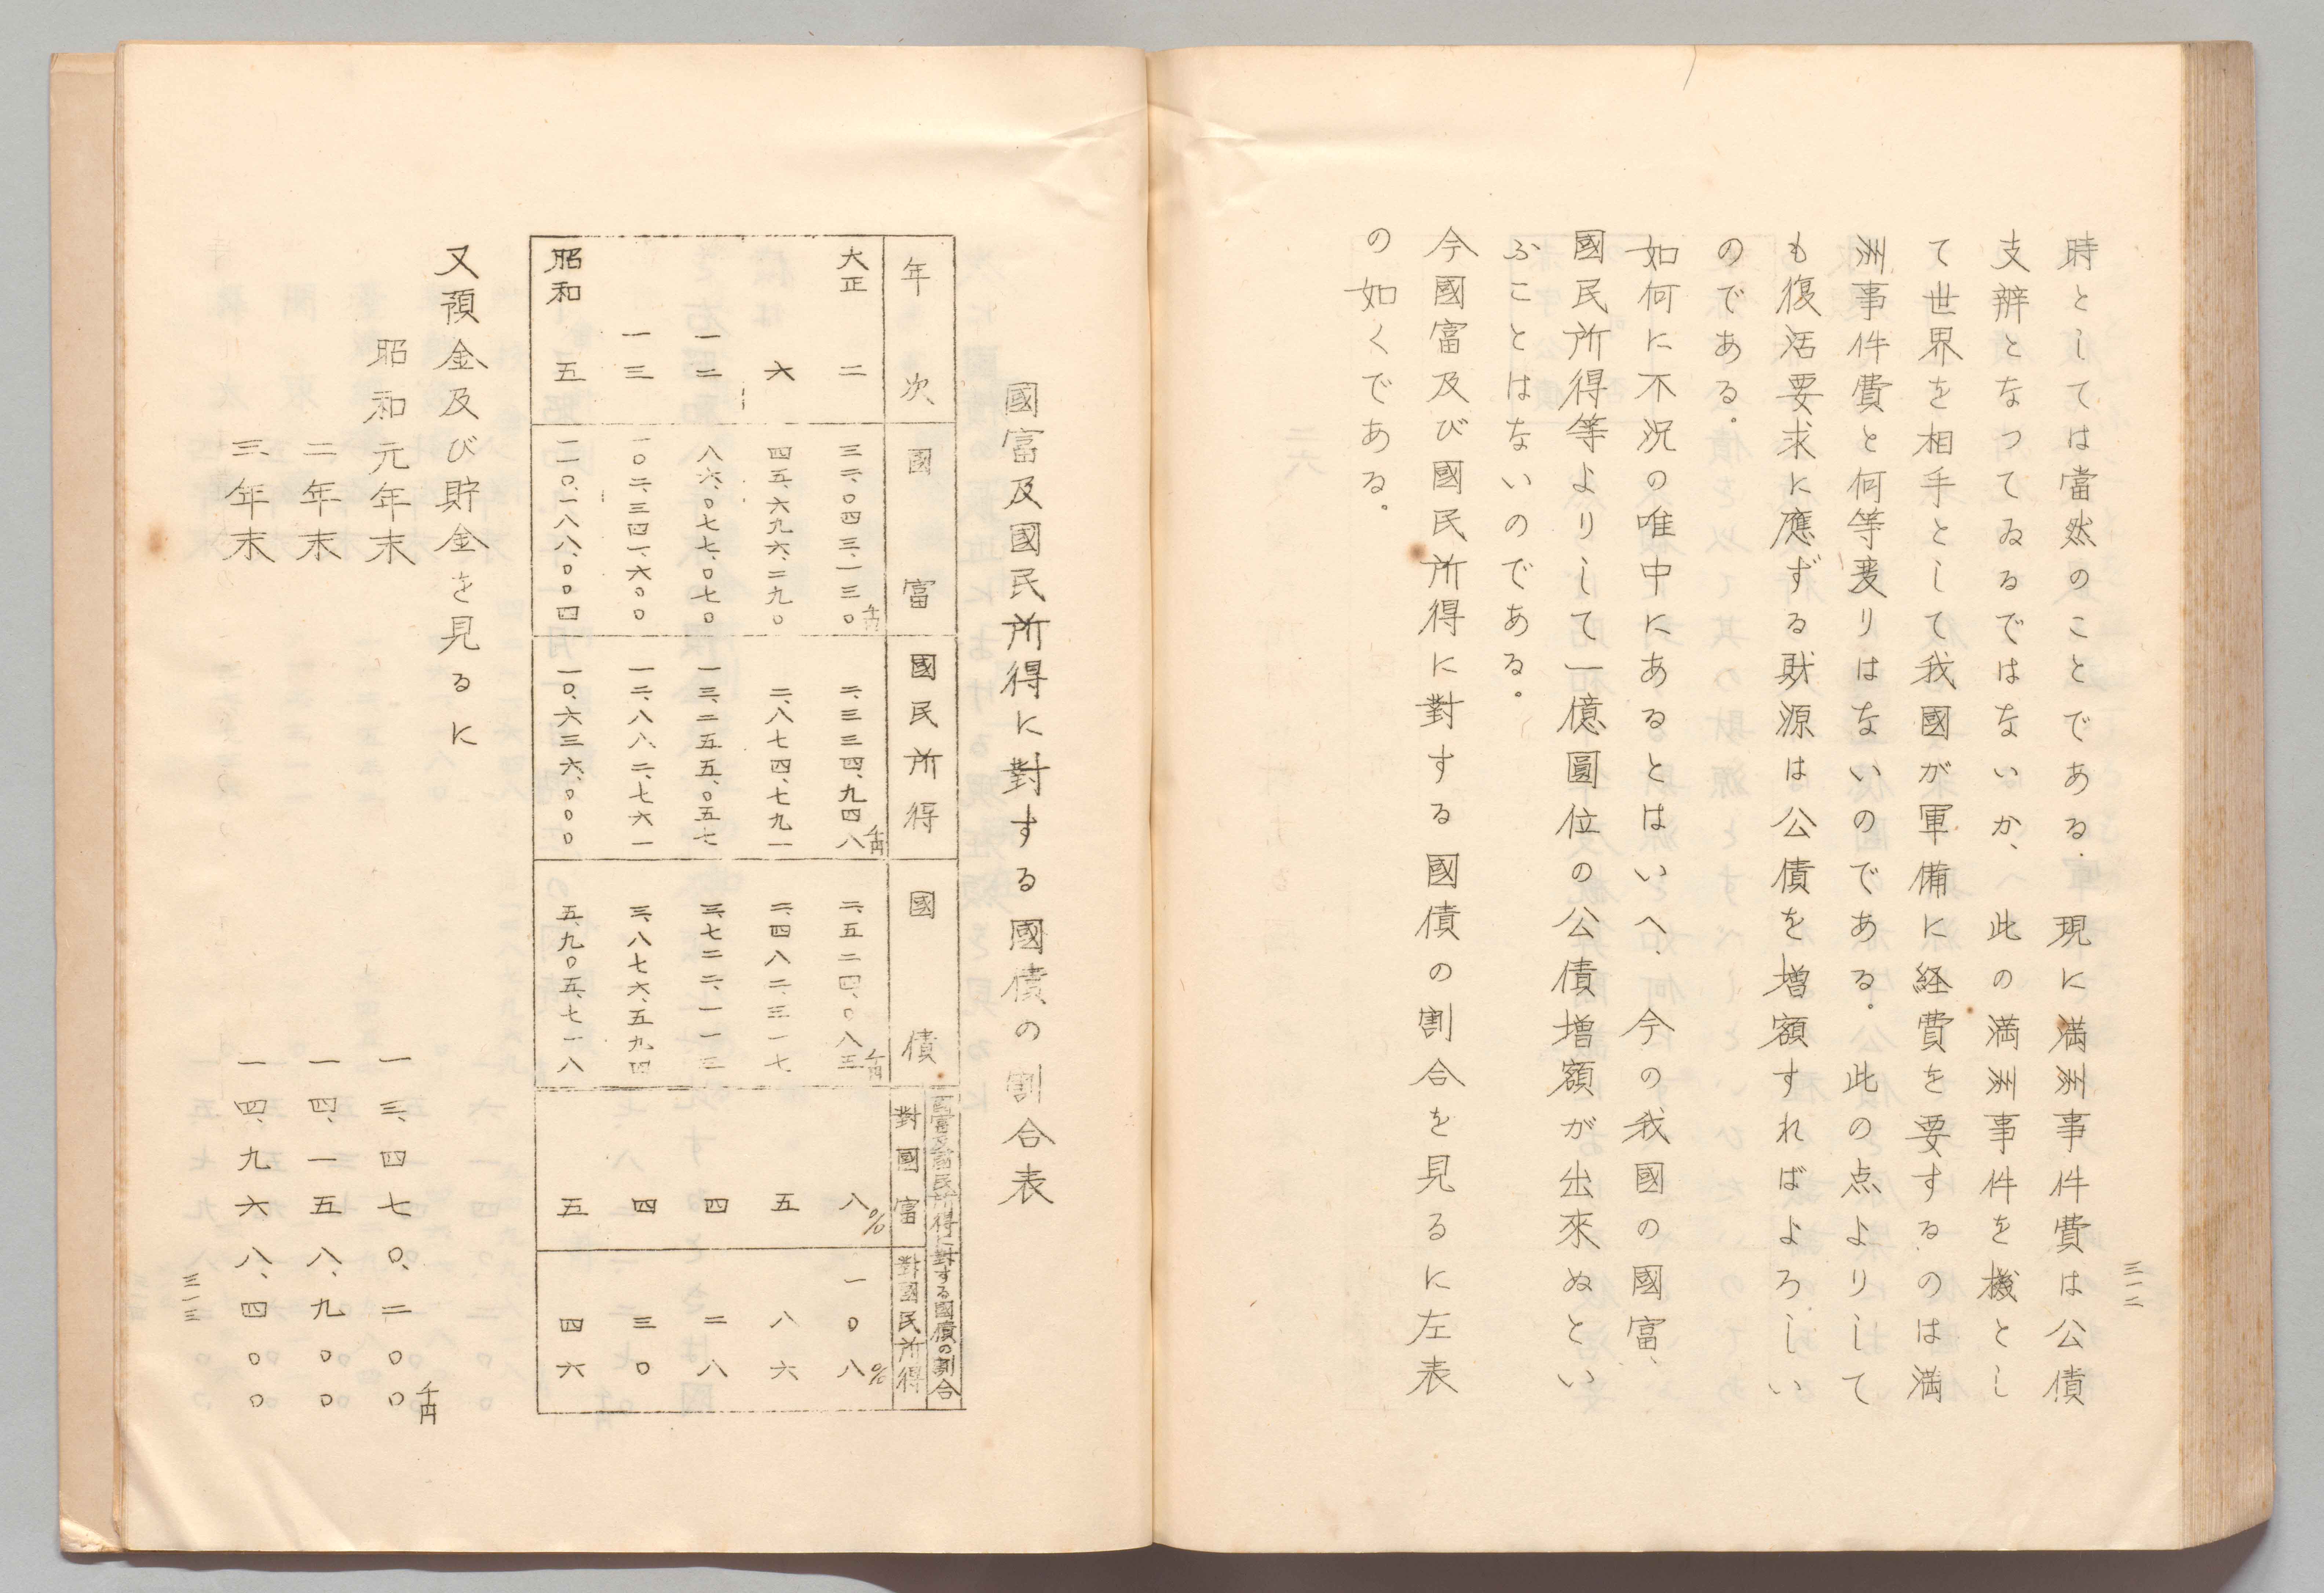 三一二
時としては當然のことである。現に満洲事件費は公債
支辨となつてゐるではないか、此の満洲事件を機とし
て世界を相手として我國が軍備に経費を要するのは満
洲事件費と何等変りはないのである。此の点よりして
も復活要求に應ずる財源は公債を増額すればよろしい
のである。
如何に不況の唯中にあるとはいへ、今の我國の國富、
國民所得等よりして一億圓位の公債増額が出來ぬとい
ふことはないのである。
今國富及び國民所得に對する國債の割合を見るに左表
の如くである。
國富及國民所得に對する國債の割合表
年次 國富 國民所得 國債 國富及國民所得に對する國債の割合 對國富 對國民所得
大正 二 三二、〇四三、一三〇千円 二、三三四、九四八千円 二、五二四、〇八三千円 八% 一〇八%
六 四五、六九六、二九〇 二、八七四、七九一 二、四八二、三一七 五 八六
一二 八六、〇七七、〇七〇 一三、二五五、〇五七 三、七二二、一一三 四 二八
一三 一〇二、三四一、六〇〇 一二、八八二、七六一 三、八七六、五九四 四 三〇
昭和 五 一一〇、一八八、〇〇四 一〇、六三六、〇〇〇 五、九〇五、七一八 五 四六
又預金及び貯金を見るに
昭和元年末 一三、四七〇、二〇〇千円
二年末 一四、一五八、九〇〇
三年末 一四、九六八、四〇〇
三一三